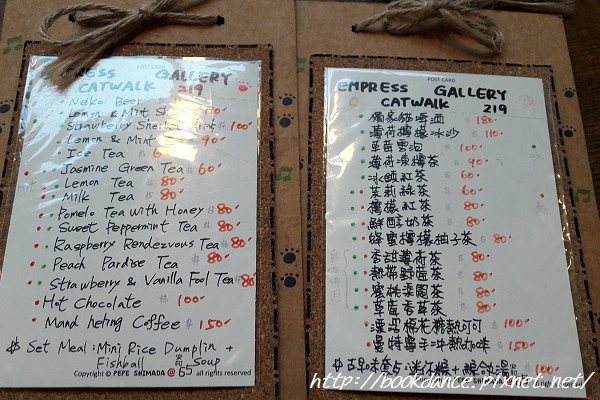 POST CARD
EMPRESS GALLERY
CATWALK 219
Neko Beer
Lemon & Mint
Strawberry Sherbet Drink 100
Lemon & Mint 90
Ice Tea
Jasmine Green Tea 60
Lemon Tea 80
Milk Tea 80
Pomelo Tea with Honey 80
Sweet Peppermint Tea 80
Raspberry Rendezvous Tea 80
Peach Pardise Tea 80
Strawberry & Vanilla Fool Tea 80
Hot Chocolate 100
Mand heling Coffee 150
Set Meal: Mini Rice Dumplin +
Fishball Soup
Copyright © PEPE SHIMADA @ 65 all rights reserved
POST CARD
EMPRESS GALLERY
CATWALK 219
獨家貓啤酒 180
薄荷檸檬冰沙 110
草莓雪泡 100
薄荷凍檸茶 90
冰鎮紅茶 60
茉莉綠茶 60
檸檬紅茶 80
鮮醇奶茶 80
蜂蜜檸檬柚子茶 80
香甜薄荷茶 80
熱帶野莓茶 80
蜜桃樂園茶 80
草莓香草茶 80
漂浮棉花糖熱可可 100
曼特寧手沖熱咖啡 150
100
http://bookdance.pixnet.net/